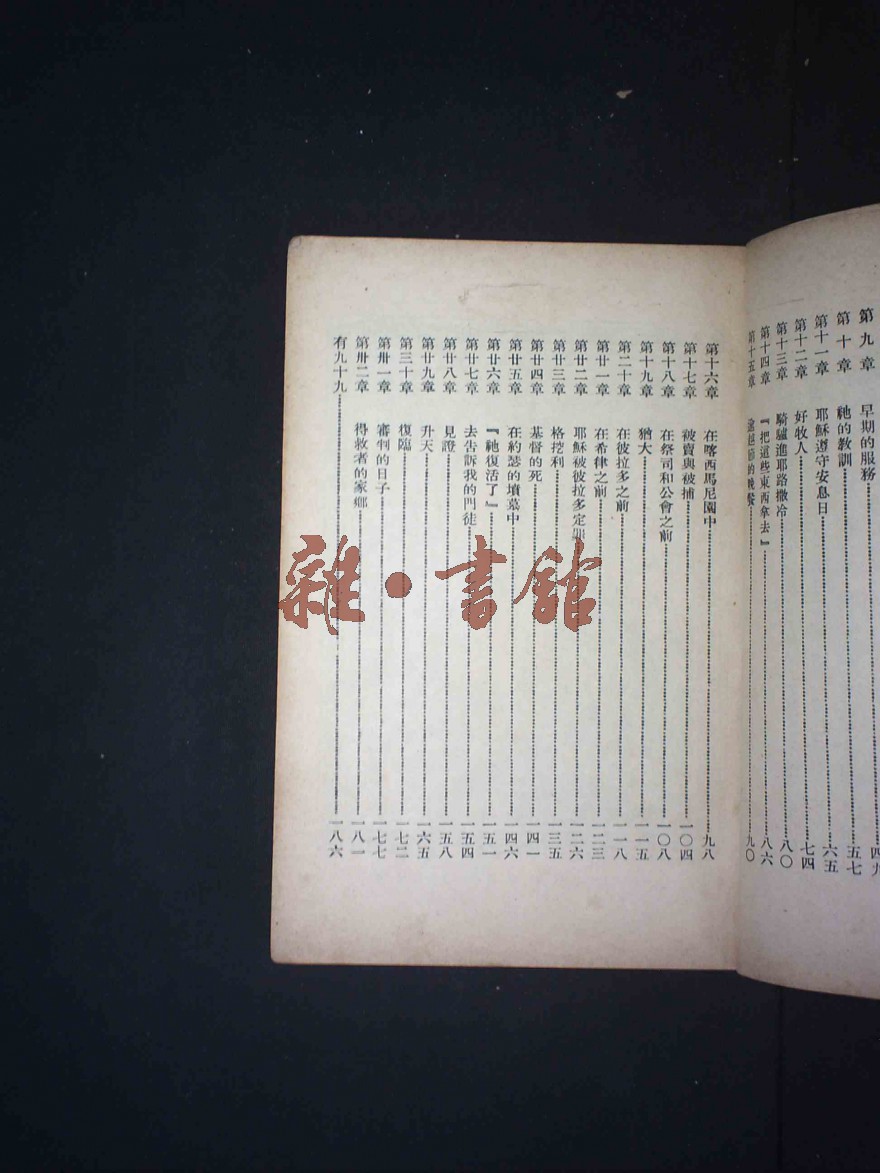 第九章 早期的服務 四九
第十章 祂的教訓 五七
第十一章 耶穌遵守安息日 六五
第十二章 好牧人 七四
第十三章 騎驢進耶路撒冷 八〇
第十四章 『把這些東西拿去』 八六
第十五章 逾越節的晚餐 九〇
第十六章 在喀西馬尼園中 九八
第十七章 被賣與被捕 一〇四
第十八章 在祭司和公會之前 一〇八
第十九章 猶大 一一五
第二十章 在彼拉多之前 一一八
第廿一章 在希律之前 一二三
第廿二章 耶穌被彼拉多定罪 一二六
第廿三章 格挖利 一三五
第廿四章 基督的死 一四一
第廿五章 在約瑟的墳墓中 一四六
第廿六章 『祂復活了』 一五一
第廿七章 去告訴我的門徒 一五四
第廿八章 見證 一五八
第廿九章 升天 一六五
第三十章 復臨 一七二
第卅一章 審判的日子 一七七
第卅二章 得救者的家鄉 一八一
有九十九 一八六
雜·書館